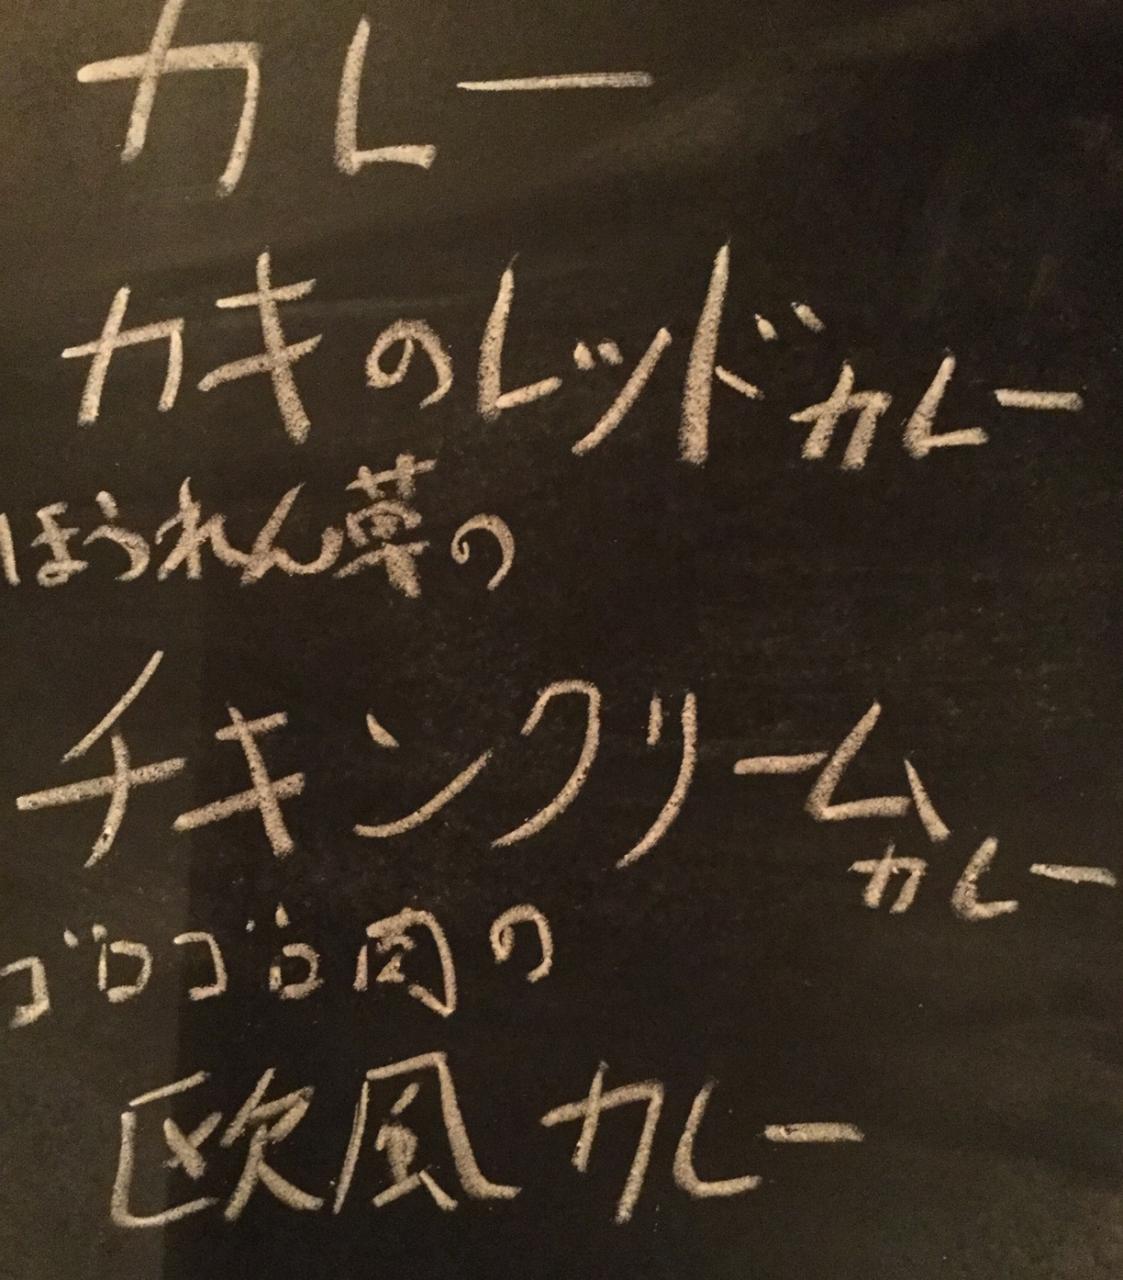 カレー
カキのレッドカレー
ほうれん草の
チキンクリーム
カレー
ゴロゴロ肉の
欧風カレー